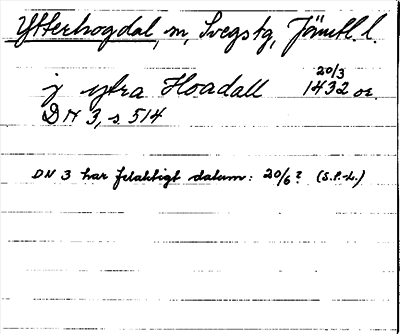 Ytterhogdal, sn, Svegs tg, Jämtl. l.
j ytra Hoadall 20/3 1432 or.
DN 3, s 514
DN 3 har felaktigt datum: 20/6? (S.P.-L.)